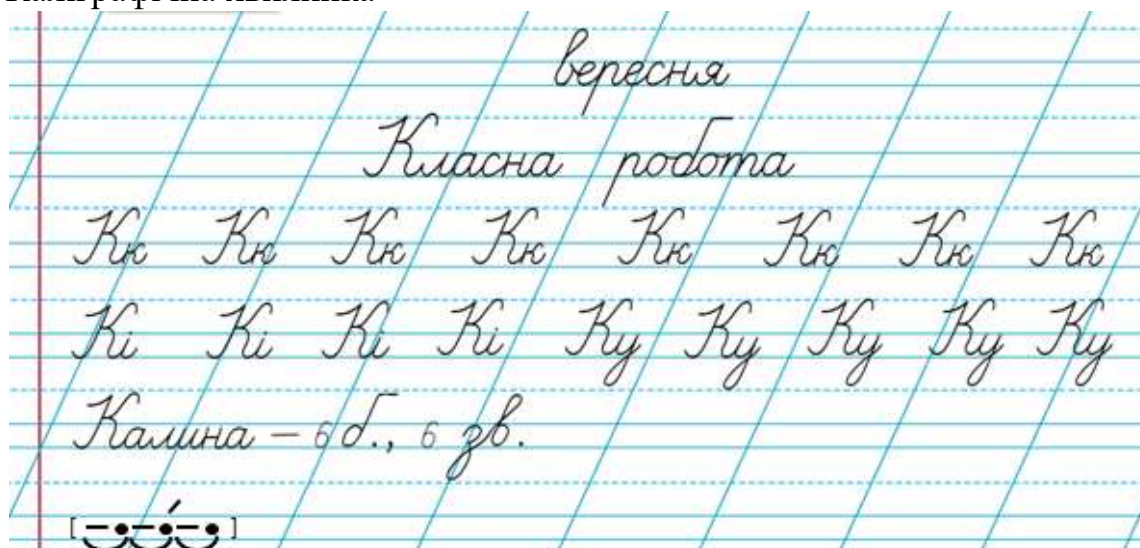 вересня
Класна робота
Кк Кк Кк Кк Кк Кк Кк Кк
Кі Кі Кі Кі Ку Ку Ку Ку Ку
Калина – 6 б., 6 зв.
[–•–•́–•]